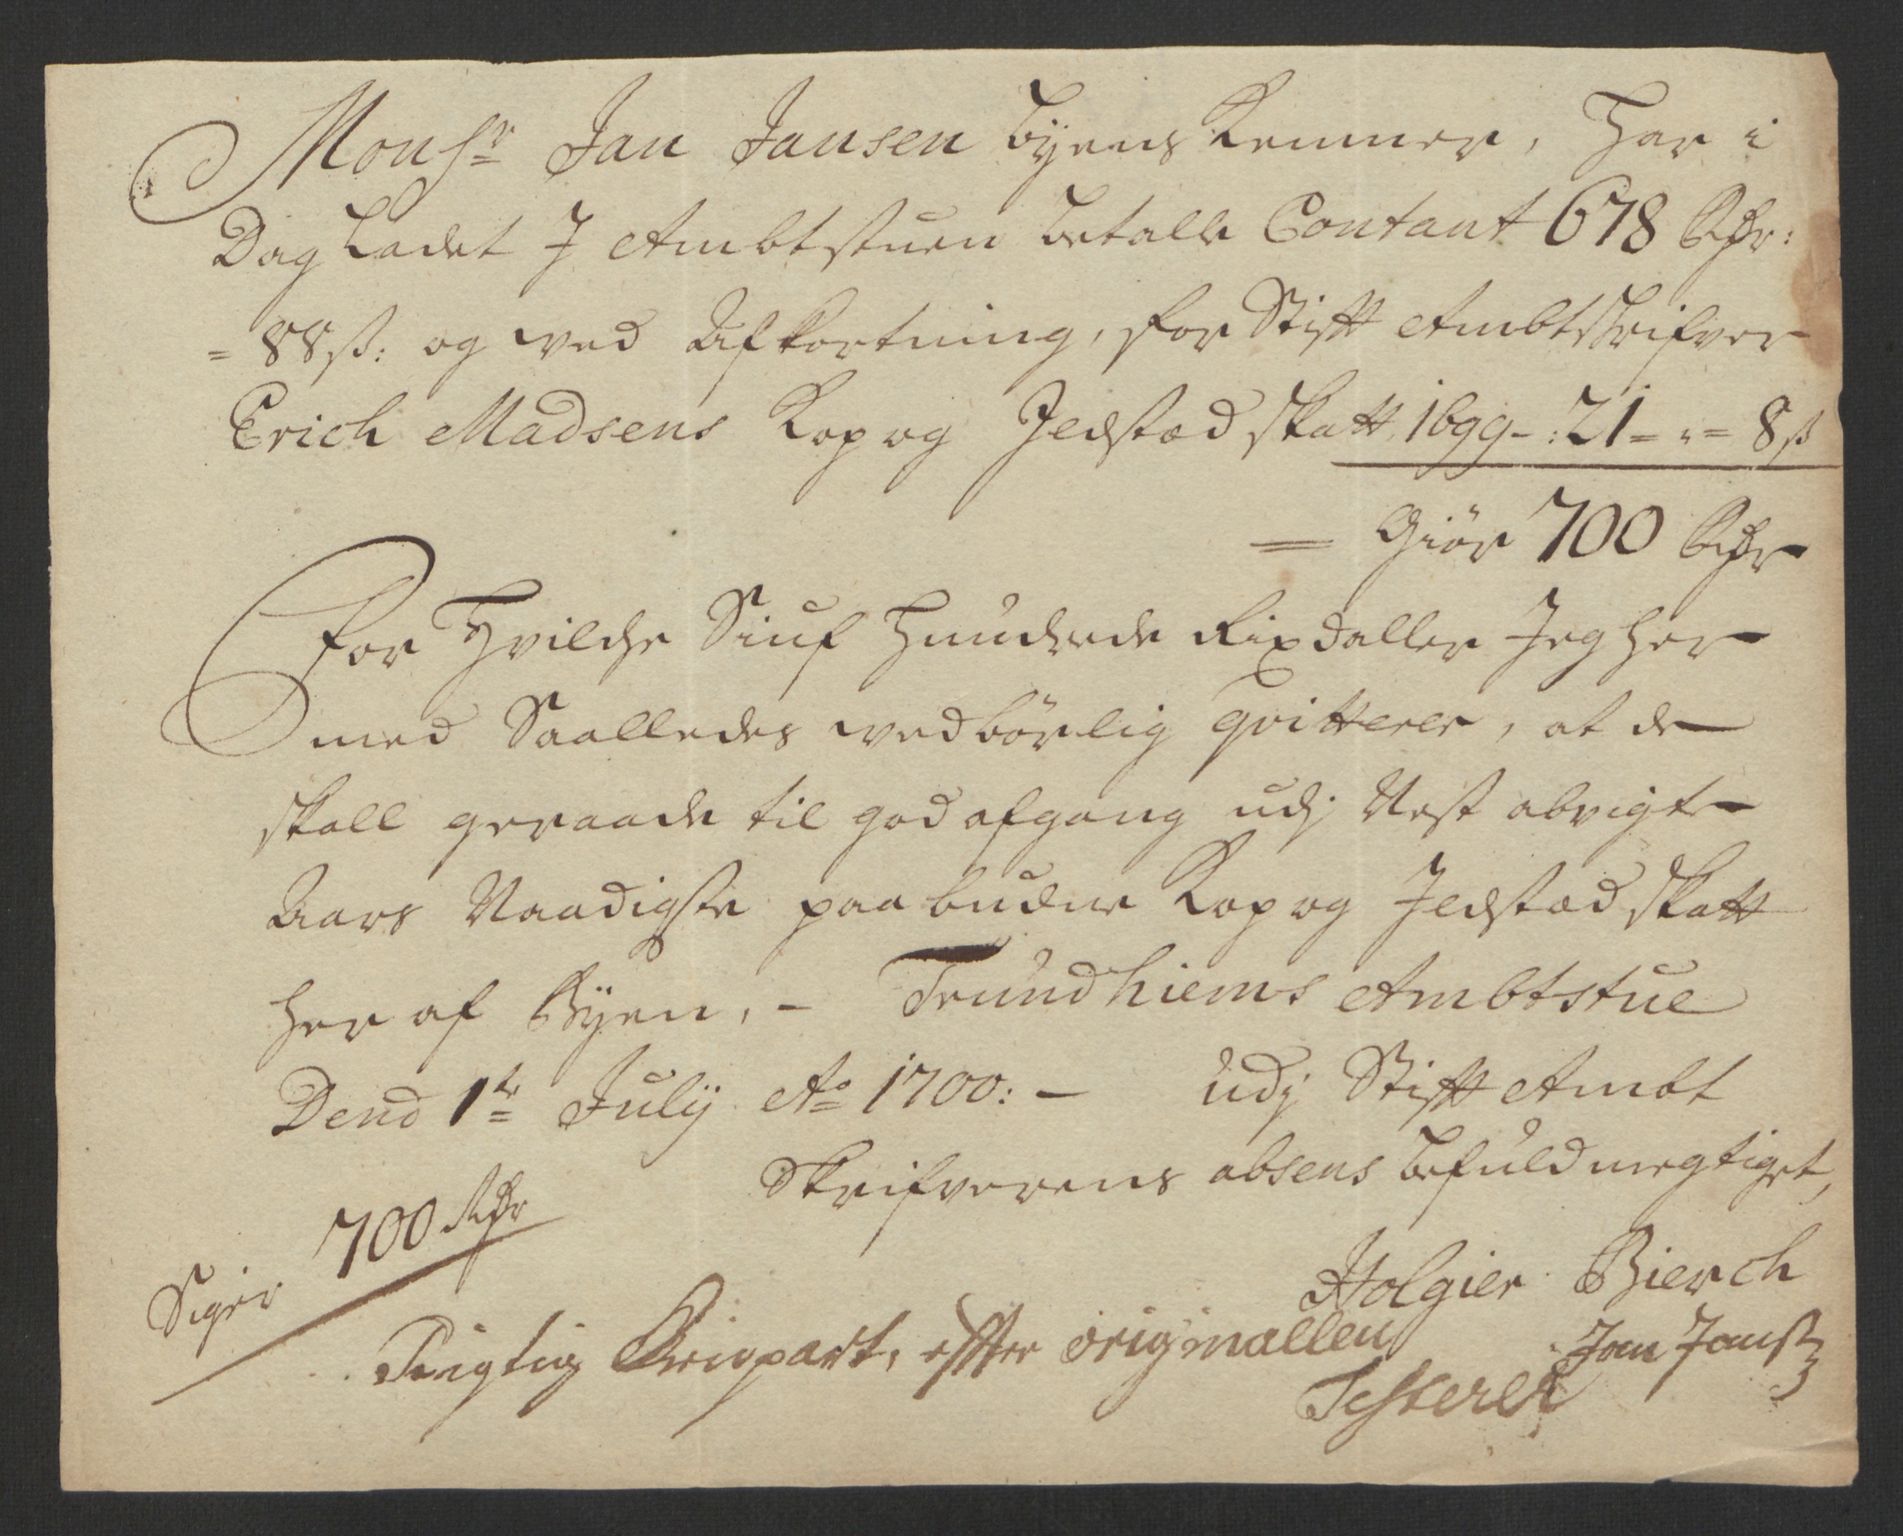 Monsr Jan Jansen byens Kemner, Har i
Dag Ladet J Ambtstuen betalle Contant 678 Rdr:
= 88 ß: og ved Afkortning, for Stift Ambtskrifver
Erich Madsens Kop og Jldsted skatt 1699 - : 21 = " = 8 ß
= Giör 700 Rdr
For Hvilche Siuf Hundrede Rixdaller Jeg her
med Saalledes vedbörlig qvitterer, at de
skall geraade til god afgang udj Nest abvigte
Aars Naadigste paabudne Kop og Jldsted skatt
her af Byen, - Trundhiems Ambtstue
Dend 1te Julij Ao 1700: - Udj Stift Ambt
Skrifverens absens befuldmegtiget,
Holgier Bierch
Siger 700 Rdr
Rigtig Gienpart, effter originallen
Testerer Jan Jansß